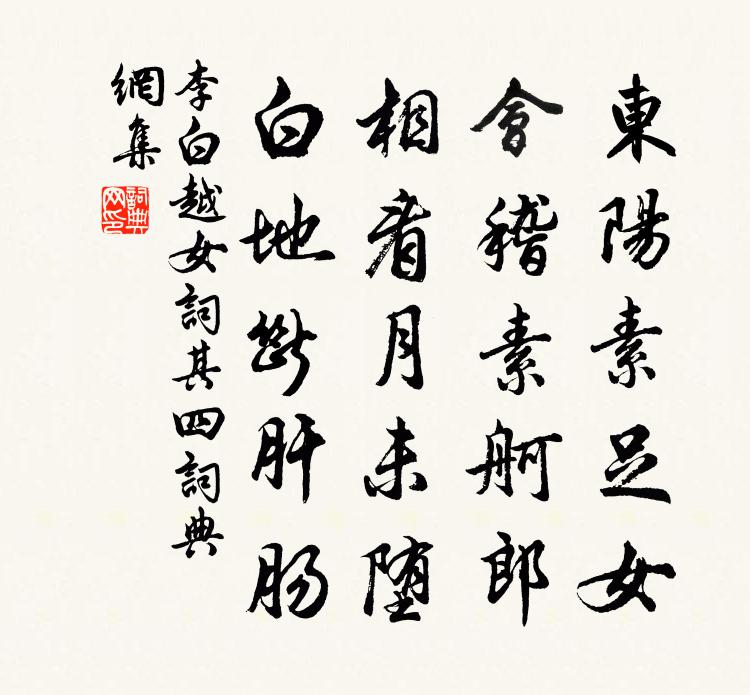 東陽素足女
會稽素舸郎
相看月未墮
白地斷肝腸
李白越女詞其四詞典
網集
詞典
网印